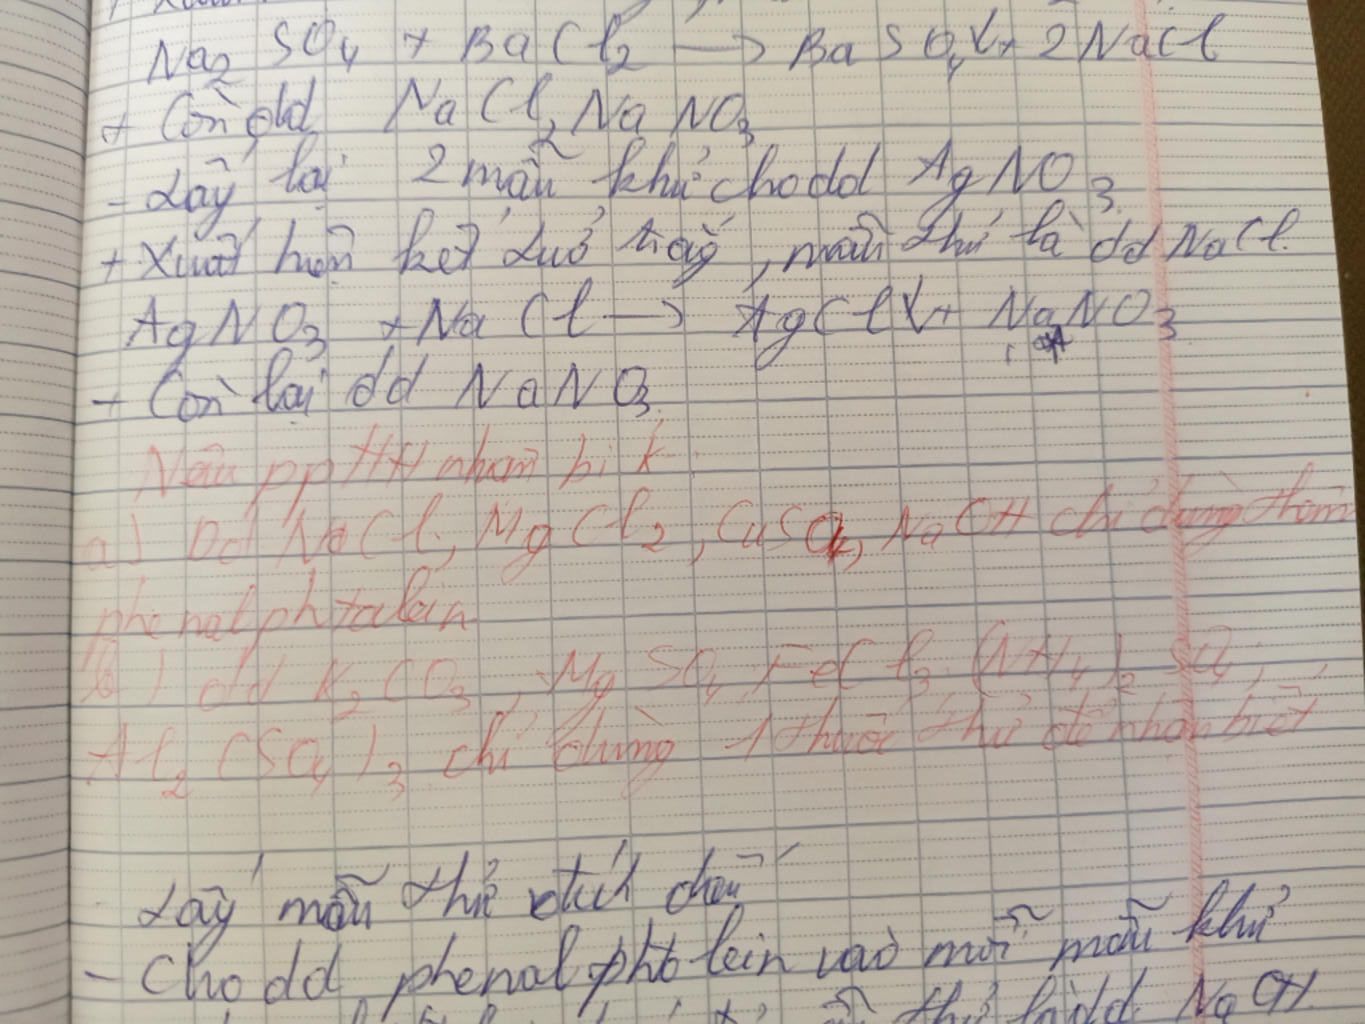 Na2SO4 + BaCl2 → BaSO4↓ + 2NaCl
+ Còn dd NaCl, NaNO3
- Lấy lại 2 mẫu thử cho dd AgNO3
+ Xuất hiện kết tủa trắng, mẫu thử là dd NaCl.
AgNO3 + NaCl → AgCl↓ + NaNO3
+ Còn lại dd NaNO3.
Nêu pp HH nhận bi k
a) Dd NaCl, MgCl2, CuSO4, NaOH chỉ dùng thêm
phenalphtalein
b) dd K2CO3, MgSO4, FeCl3, (NH4)2SO4,
Al2(SO4)3 chỉ dùng 1 thuốc thử để nhận biết
- Lấy mẫu thử đích
- Cho dd phenalphtolein vào mỗi mẫu thử
thử là dd NaOH